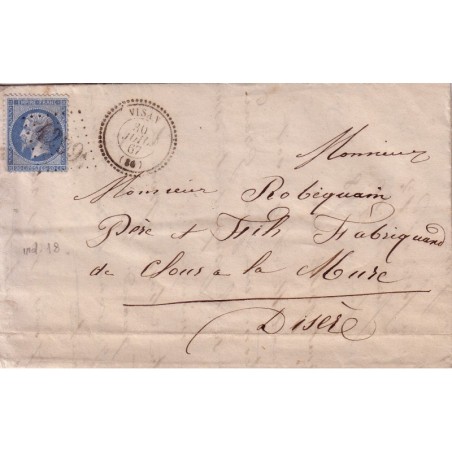 EMPIRE FRANC
VISAN
30
JUIL
67
(86)
Monsieur
Monsieur Robéquain
Père et Fils Fabriquand
de Clous a la Mure
Disère
ind. 18